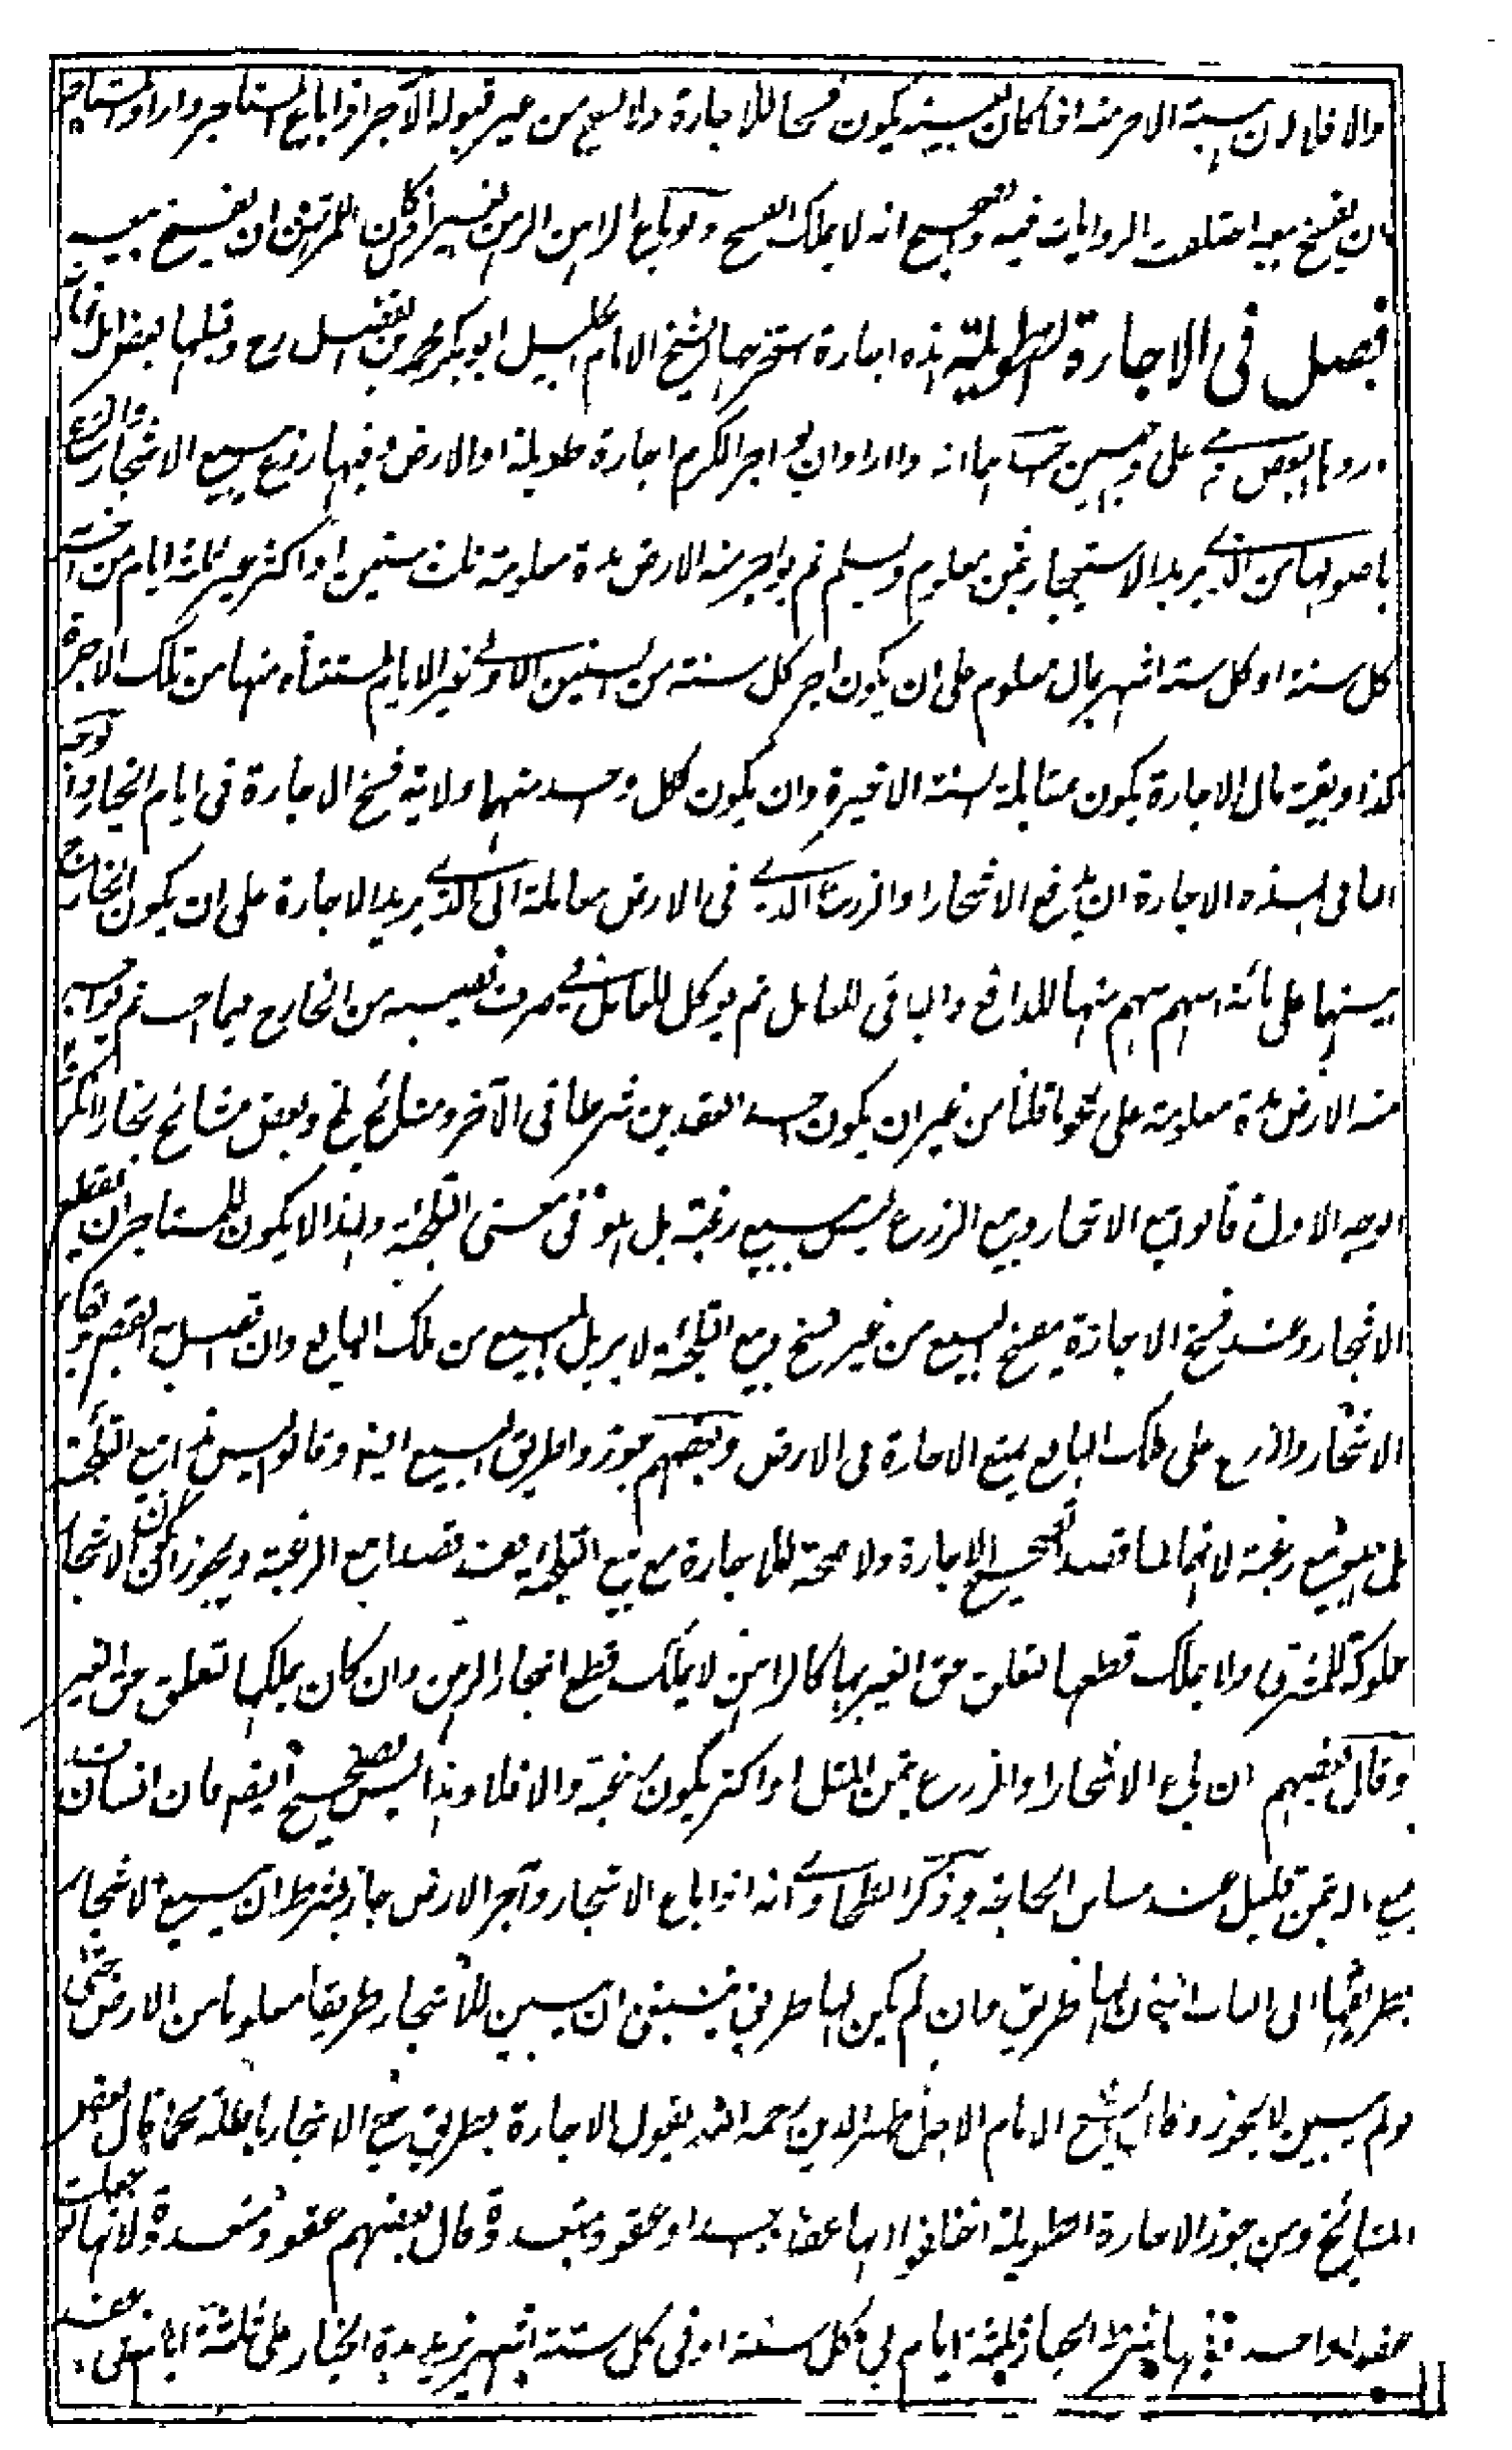 والا فلا لان سبته الاجر منه اذا كان يكون فسخا للاجارة ولا يصح من غير قبوله الآجر اذا باع المستاجر دارا والمستاجر
ان يفسخ بيعه اختلفت الروايات فيه والصحيح انه لا يملك الفسخ ولو باع الراهن الرهن كان للمرتهن ان يفسخ بيعه
فصل فى الاجارة الطويلة هذه اجارة استخرجها الشيخ الامام الجليل ابو بكر محمد بن الفضل رح وقبلها بعض اهل زمانه
وردها البعض وهى على وجهين احدهما انه اذا اراد ان يواجر الكرم اجارة طويلة او الارض وفيها زرع يبيع الاشجار والزرع
باصولها من الذى يريد الاستيجار بثمن معلوم ويسلم ثم يواجر منه الارض مدة معلومة ثلث سنين او اكثر غير ثلثة ايام من اخر
كل سنة او كل ستة اشهر بمال معلوم على ان يكون اجر كل سنة من السنين الاولى غير الايام المستثناه منها من تلك الاجرة
كذا وبقية مال الاجارة يكون بمقابلة السنة الاخيرة وان يكون لكل واحد منهما ولاية فسخ الاجارة فى ايام الخيار والوجه
الثانى لهذه الاجارة ان يدفع الاشجار والزرع الذى فى الارض معاملة الى الذى يريد الاجارة على ان يكون الخارج
بينهما على مائة اسهم سهم منها للدافع والباقى للعامل ثم يوكل للعامل فى صرف نصيبه من الخارج فيما احب ثم يواجر
منه الارض مدة معلومة على نحو ما قلنا من غير ان يكون احد العقدين شرطا فى الآخر ومشائخ بلخ وبعض مشائخ بخارا انكروا
الوجه الاول قالوا بيع الاشجار وبيع الزرع ليس ببيع رغبة بل هو فى معنى التلجئة ولهذا لا يكون للمستاجر ان يقطع
الاشجار وعند فسخ الاجارة ينفسخ البيع من غير فسخ وبيع التلجئة لا يزيل المبيع من ملك البايع وان اتصل به القبض وبقاء
الاشجار والزرع على ملك البايع يمنع الاجارة فى الارض وبعضهم جوزوا طريق البيع ايضا وقالوا ليس هذا بيع التلجئة
بل هو بيع رغبة لانهما لما قصدا تصحيح الاجارة ولا صحة للاجارة مع بيع التلجئة فقد قصدا بيع الرغبة ويجوز ان يكون الاشجار
مملوكة للمشترى ولا يملك قطعها لتعلق حق الغير بها كالراهن لا يملك قطع اشجار الرهن وان كان يملكها لتعلق حق الغير
وقال بعضهم ان باع الاشجار والزرع بثمن المثل او اكثر يكون رغبة والا فلا وهذا ليس بصحيح ايضا فان الانسان قد
يبيع ماله بثمن قليل عند مساس الحاجة وذكر الطحاوى انه اذا باع الاشجار وآجر الارض جاز بشرط ان يبيع الاشجار
بطريقها الى الباب ان كان لها طريق وان لم يكن لها طريق ينبغى ان يبين للاشجار طريقا معلوما من الارض حتى
لو لم يبين لا يجوز وكان الشيخ الامام الاجل ظهير الدين رحمه الله يقول الاجارة بطريق بيع الاشجار باطلة كما قال بعض
المشايخ ومن جوز الاجارة الطويلة اختلفوا انها عقد واحد او عقود متعددة قال بعضهم عقود متعددة لانها لو جعلت
عقدا واحدا فيها شرط الخيار ثلثة ايام فى كل سنة او فى كل ستة اشهر يزيد مدة الخيار على ثلثة ايام فى عقد